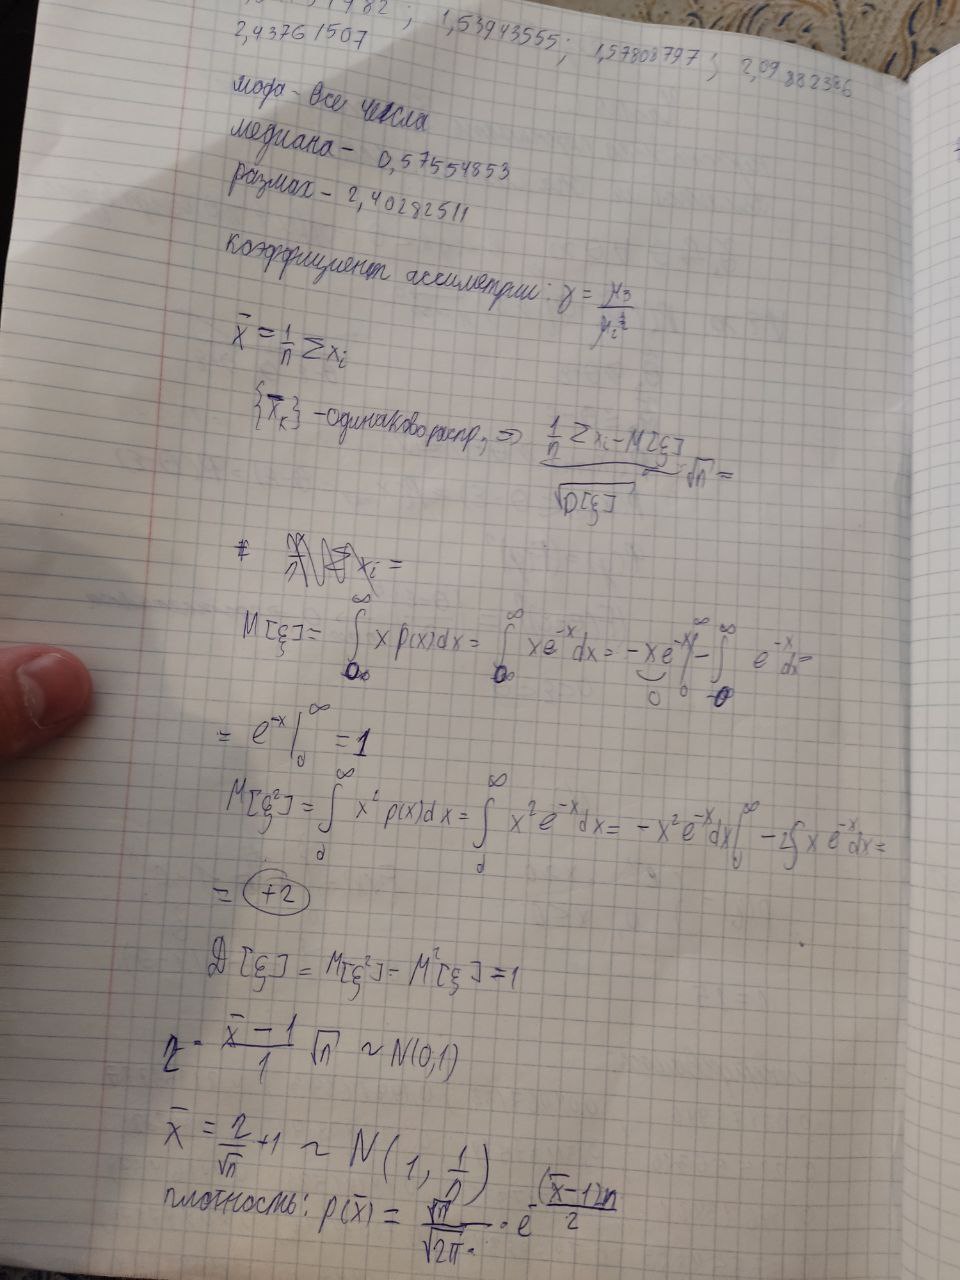 1,53943555; 1,57808797; 2,09882386
2,43761507
мода - все числа
медиана - 0,57554853
размах - 2,40282511
коэффициент ассиметрии: γ = μ₃ / μ₂^(3/2)
x̄ = 1/n Σ xᵢ
{X̄ₖ} - одинаково распр, ⇒ (1/n Σ xᵢ - M[ξ]) / √D[ξ] · √n =
M[ξ] = ∫₀^∞ x p(x)dx = ∫₀^∞ xe⁻ˣdx = -xe⁻ˣ|₀^∞ - ∫₀^∞ e⁻ˣdx =
= e⁻ˣ|₀^∞ = 1
M[ξ²] = ∫₀^∞ x² p(x)dx = ∫₀^∞ x²e⁻ˣdx = -x²e⁻ˣdx|₀^∞ - 2∫xe⁻ˣdx =
= +2
D[ξ] = M[ξ²] - M²[ξ] = 1
η = (x̄ - 1)/1 √n ~ N(0,1)
x̄ = η/√n + 1 ~ N(1, 1/n)
плотность: p(x̄) = √n/√2π · e^(-(x̄-1)n/2)